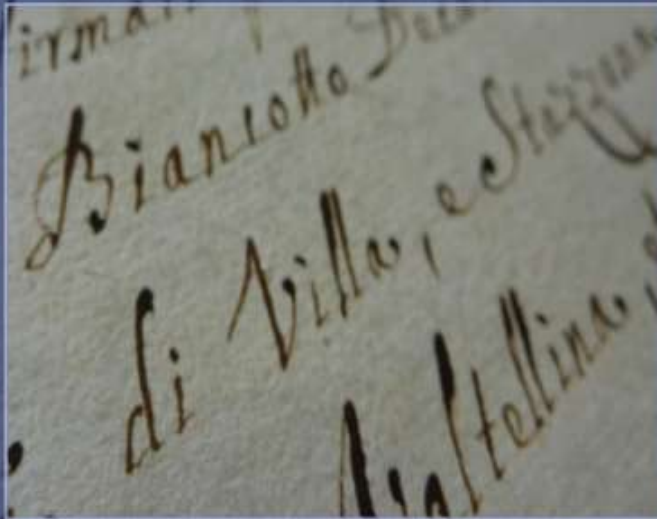 Biancotto
di Villa, e Stazzona
Valtellina,